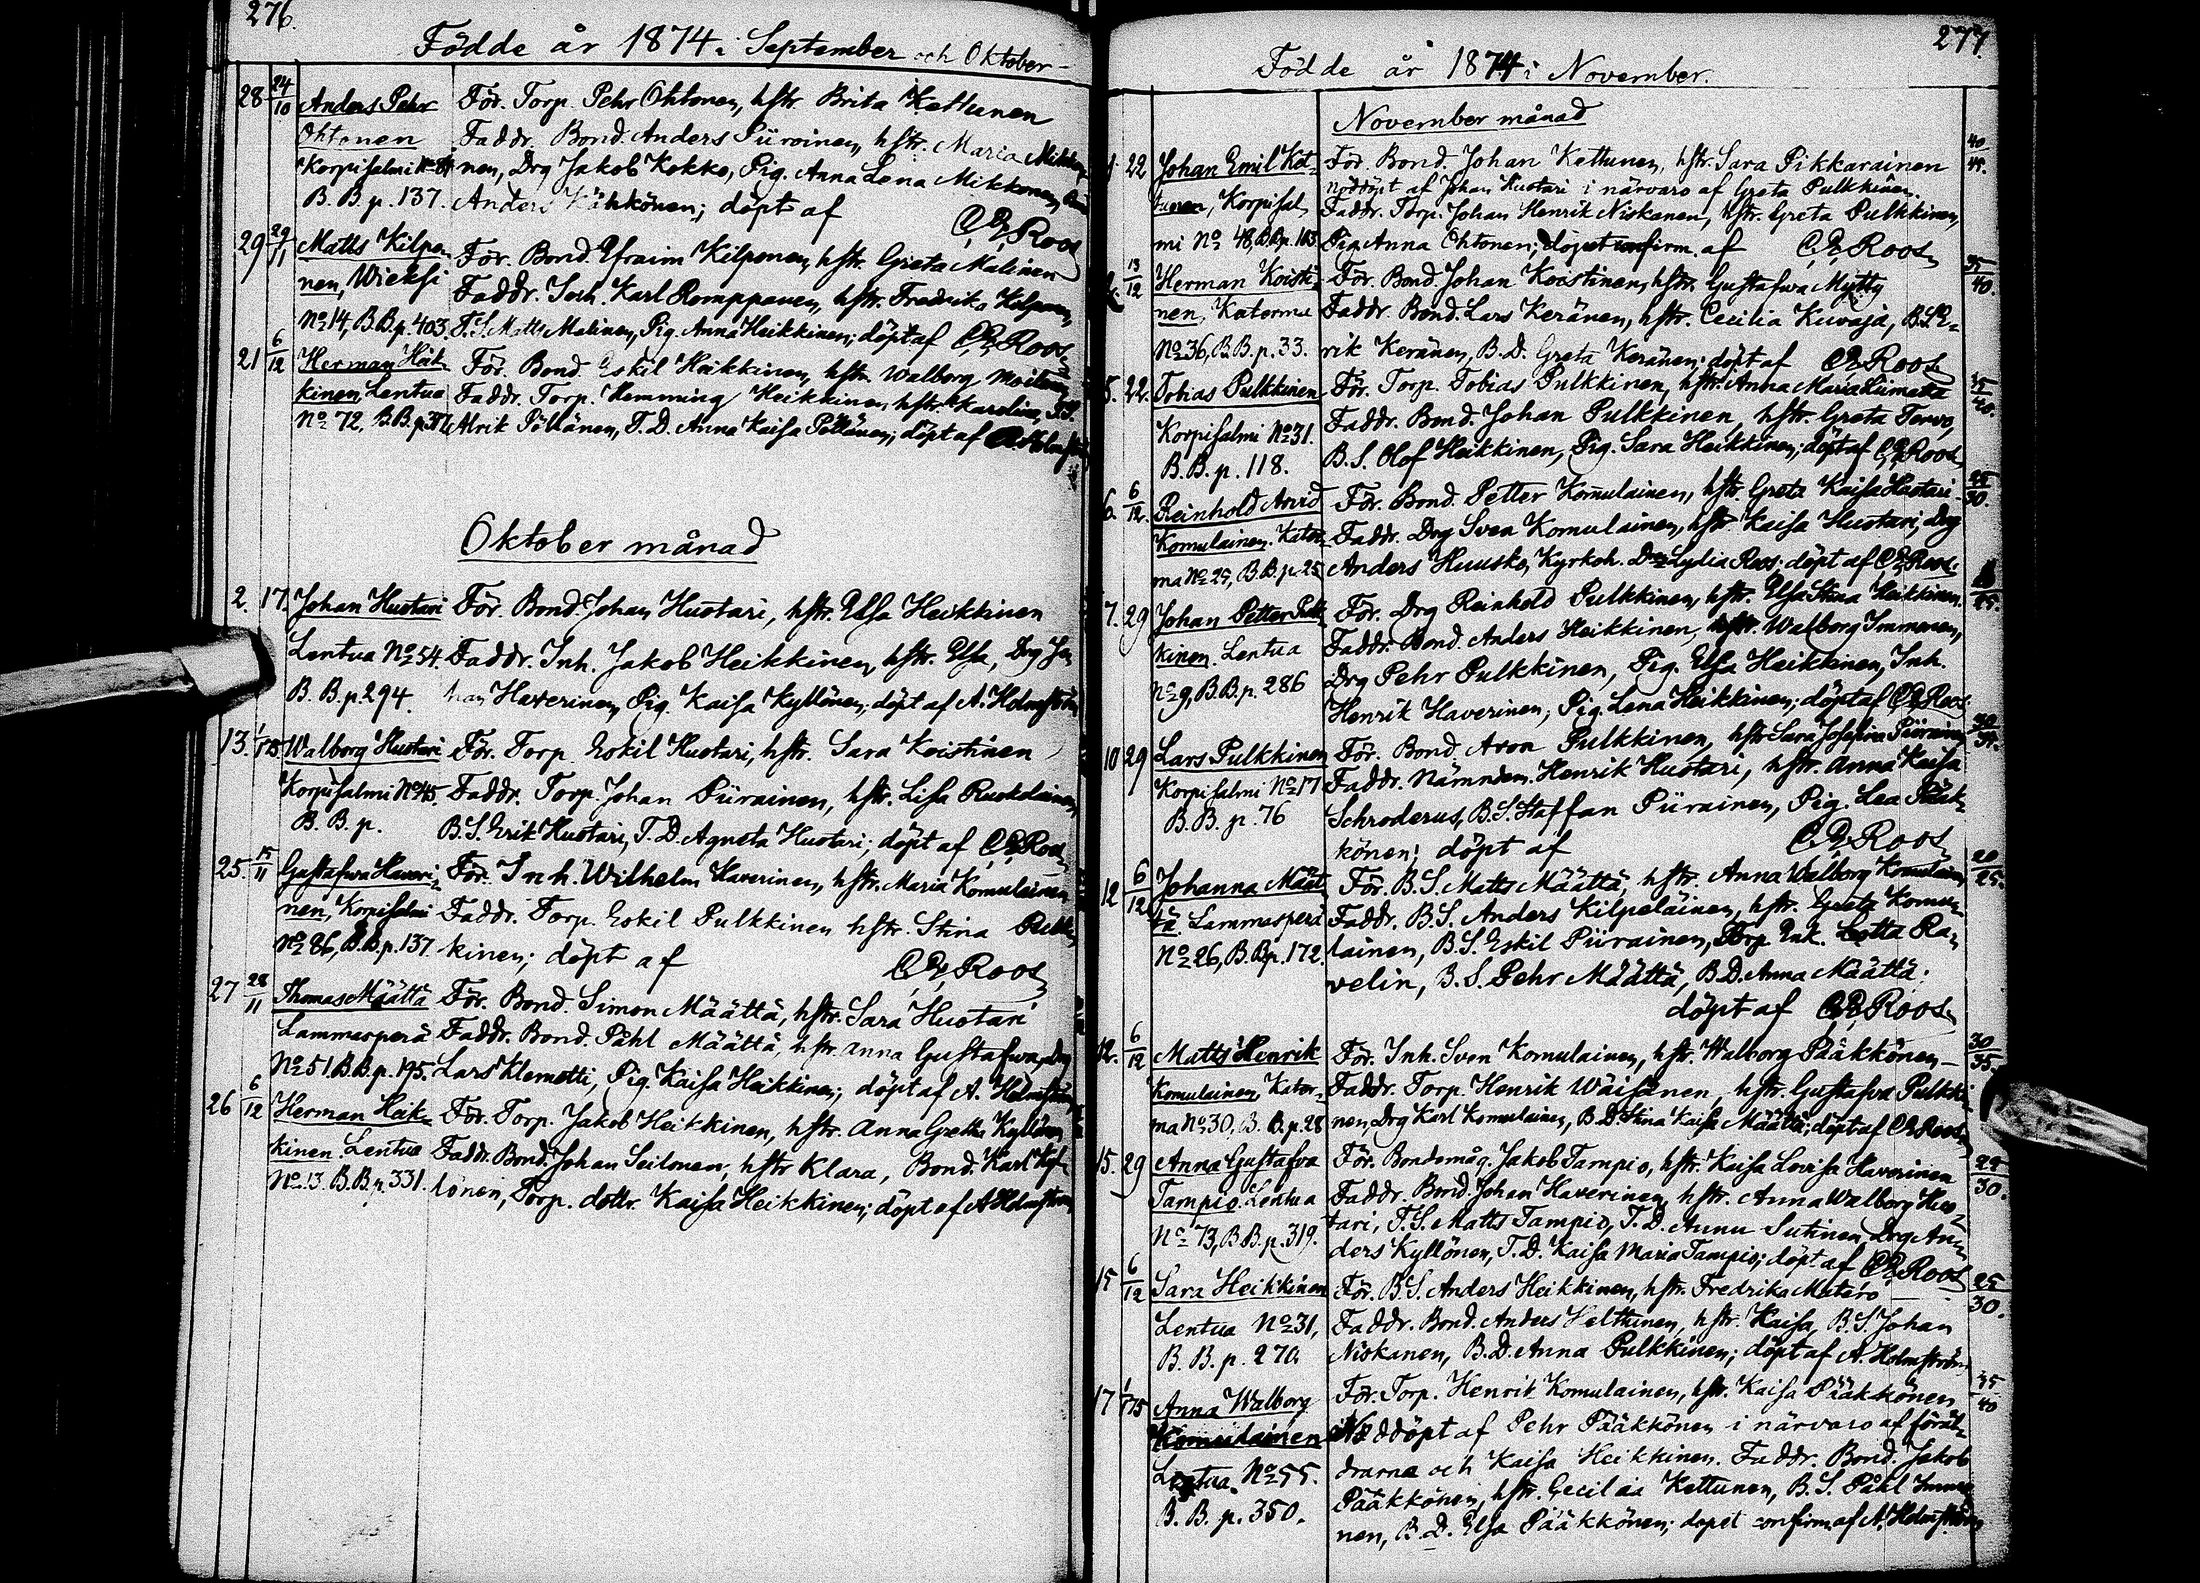 276.
Födde år 1874 i September och Oktober
28 24/10 Anders Pehr För. Torp. Pehr Ohtonen, hstr Brita Kettunen
Ohtonen Faddr. Bond. Anders Piirainen, hstr. Maria
Korpisalmi nen, Drg Jakob Kokko, Pig. Anna Lena Mikkonen,
B. B. p. 137. Anders Kähkönen; döpt af C. E. Roos
29 29/11 Matts Kilpo- För. Bond. Efraim Kilponen, hstr. Greta Malinen
nen, Wieksi Faddr. Inh. Karl Romppanen, hstr. Fredrika Kilponen,
No 14, B.B.p. 403. T.S. Matts Malinen, Pig. Anna Heikkinen; döpt af C. E. Roos
21 6/12 Herman Heik- För. Bond. Eskil Heikkinen, hstr. Walborg
kinen, Lentua Faddr. Torp. Hemming Heikkinen, hstr. Karolina, T.S.
No 72, B.B.p. Alrik Pöllänen, T.D. Anna Kaisa Pöllänen; döpt af A. Holmström
Oktober månad
2. 17. Johan Huotari För. Bond. Johan Huotari, hstr. Elsa Heikkinen
Lentua No 54. Faddr. Inh. Jakob Heikkinen, hstr. Elsa, Drg Jo-
B. B. p. 294. han Haverinen, Pig. Kaisa Kyllönen; döpt af A. Holmström
13. 1/1 75 Walborg Huotari För. Torp. Eskil Huotari, hstr. Sara Koistinen
Korpisalmi No 45. Faddr. Torp. Johan Piirainen, hstr. Lisa Ruokolainen,
B. B. p. B.S. Erik Huotari, T.D. Agneta Huotari; döpt af C. E. Roos
25. 15/11 Gustafwa Haveri- För. Inh. Wilhelm Haverinen, hstr. Maria Komulainen
nen, Korpisalmi Faddr. Torp. Eskil Pulkkinen hstr. Stina Pulk-
No 86, B.B.p. 137 kinen; döpt af C. E. Roos
27 28/11 Thomas Määttä För. Bond. Simon Määttä, hstr. Sara Huotari
Lammasperä Faddr. Bond. Påhl Määttä, hstr. Anna Gustafwa, Drg
No 51 B.B.p. 195. Lars Klemetti, Pig. Kaisa Heikkinen; döpt af A. Holmström
26 6/12 Herman Heik- För. Torp. Jakob Heikkinen, hstr. Anna Greta Kyllönen
kinen Lentua Faddr. Bond. Johan Seilonen, hstr Klara, Bond. Karl Kyl-
No 13. B.B.p. 331. lönen, Torp. dottr. Kaisa Heikkinen; döpt af A Holmström
277.
Födde år 1874 i November.
November månad
1 22 Johan Emil Ket- För. Bond. Johan Kettunen, hstr. Sara Pikkarainen 40/45.
tunen, Korpisal- nöddöpt af Johan Huotari i närvaro af Greta Pulkkinen.
Faddr. Torp. Johan Henrik Niskanen, hstr. Greta Pulkkinen,
mi No 48, B.B.p. 103 Pig. Anna Ohtonen; döpet confirm. af C. E. Roos
13/12 Herman Koisti- För. Bond. Johan Koistinen, hstr. Gustafwa Mytty 35/40.
nen, Katerma Faddr. Bond. Lars Keränen, hstr. Cecilia Kuvaja, B.S. E-
No 36, B.B.p. 33. rik Keränen, B.D. Greta Keränen; döpt af C. E. Roos
5. 22. Tobias Pulkkinen För. Torp. Tobias Pulkkinen, hstr. Anna Maria Liimatta 35/40.
Korpisalmi No 31. Faddr. Bond. Johan Pulkkinen, hstr. Greta Tervo,
B. B. p. 118. B.S. Olof Heikkinen, Pig. Sara Heikkinen; döpt af C. E. Roos
6. 6/12. Reinhold Arvid För. Bond. Petter Komulainen, hstr. Greta Kaisa Huotari 25/30.
Komulainen. Kater- Faddr. Drg Sven Komulainen, hstr Kaisa Huotari, Drg
ma No 29, B.B.p. 25 Anders Huusko, Kyrkoh. Lydia Roos; döpt af C. E. Roos.
7. 29 Johan Petter Pulk- För. Drg Reinhold Pulkkinen, hstr. Elsa Stina Heikkinen
kinen. Lentua Faddr. Bond. Anders Heikkinen, hstr. Walborg Immonen,
No 9, B.B.p. 286 Drg Pehr Pulkkinen, Pig. Elsa Heikkinen, Inh.
Henrik Haverinen, Pig. Lena Heikkinen; döpt af C. E. Roos
10 29 Lars Pulkkinen För. Bond. Aron Pulkkinen, hstr Sara Josefina Piirainen
Korpisalmi No 17 Faddr. Nämndem. Henrik Huotari, hstr. Anna Kaisa
B. B. p. 76 Schroderus, B.S. Staffan Piirainen, Pig. Lea Pääk-
könen; döpt af C. E. Roos
12 6/12 Johanna Määt- För. B.S. Matts Määttä, hstr. Anna Walborg Komulainen 20/25.
tä Lammasperä Faddr. B.S. Anders Kilpeläinen, hstr. Greta Komu-
No 26, B.B.p. 172. lainen, B.S. Eskil Piirainen, Torp. Enk. Lotta Ra-
velin, B.S. Pehr Määttä, B.D. Anna Määttä;
döpt af C. E. Roos
12. 6/12 Matts Henrik För. Inh. Sven Komulainen, hstr. Walborg Pääkkönen 30/35.
Komulainen Kater- Faddr. Torp. Henrik Wäisänen, hstr. Gustafva Pulkki-
ma No 30, B. B.p. 28 nen, Drg Karl Komulainen, B.D. Stina Kaisa Määttä; döpt af C. E. Roos
15. 29 Anna Gustafva För. Bondemåg. Jakob Tampio, hstr. Kaisa Lovisa Haverinen 25/30.
Tampio. Lentua Faddr. Bond. Johan Haverinen, hstr. Anna Walborg Huo-
No 73, B.B.p. 319. tari, T.S. Matts Tampio, T.D. Anna Sutinen, Drg An-
ders Kyllönen, T.D. Kaisa Maria Tampio; döpt af C. E. Roos
15 6/12 Sara Heikkinen För. B.S. Anders Heikkinen, hstr. Fredrika Matero 25/30.
Lentua No 31, Faddr. Bond. Anders Helttunen, hstr. Kaisa, B.S. Johan
B. B. p. 270. Niskanen, B.D. Anna Pulkkinen; döpt af A. Holmström
17 1/1 75 Anna Walborg För. Torp. Henrik Komulainen, hstr. Kaisa Pääkkönen 35/40
Komulainen Nöddöpt af Pehr Pääkkönen i närvaro af föräl-
Lentua No 55. drarna och Kaisa Heikkinen. Faddr. Bond. Jakob
B. B. p. 350. Pääkkönen, hstr. Cecilia Kettunen, B.S. Påhl Immo-
nen, B.D. Elsa Pääkkönen; döpet confirm. af A. Holmström